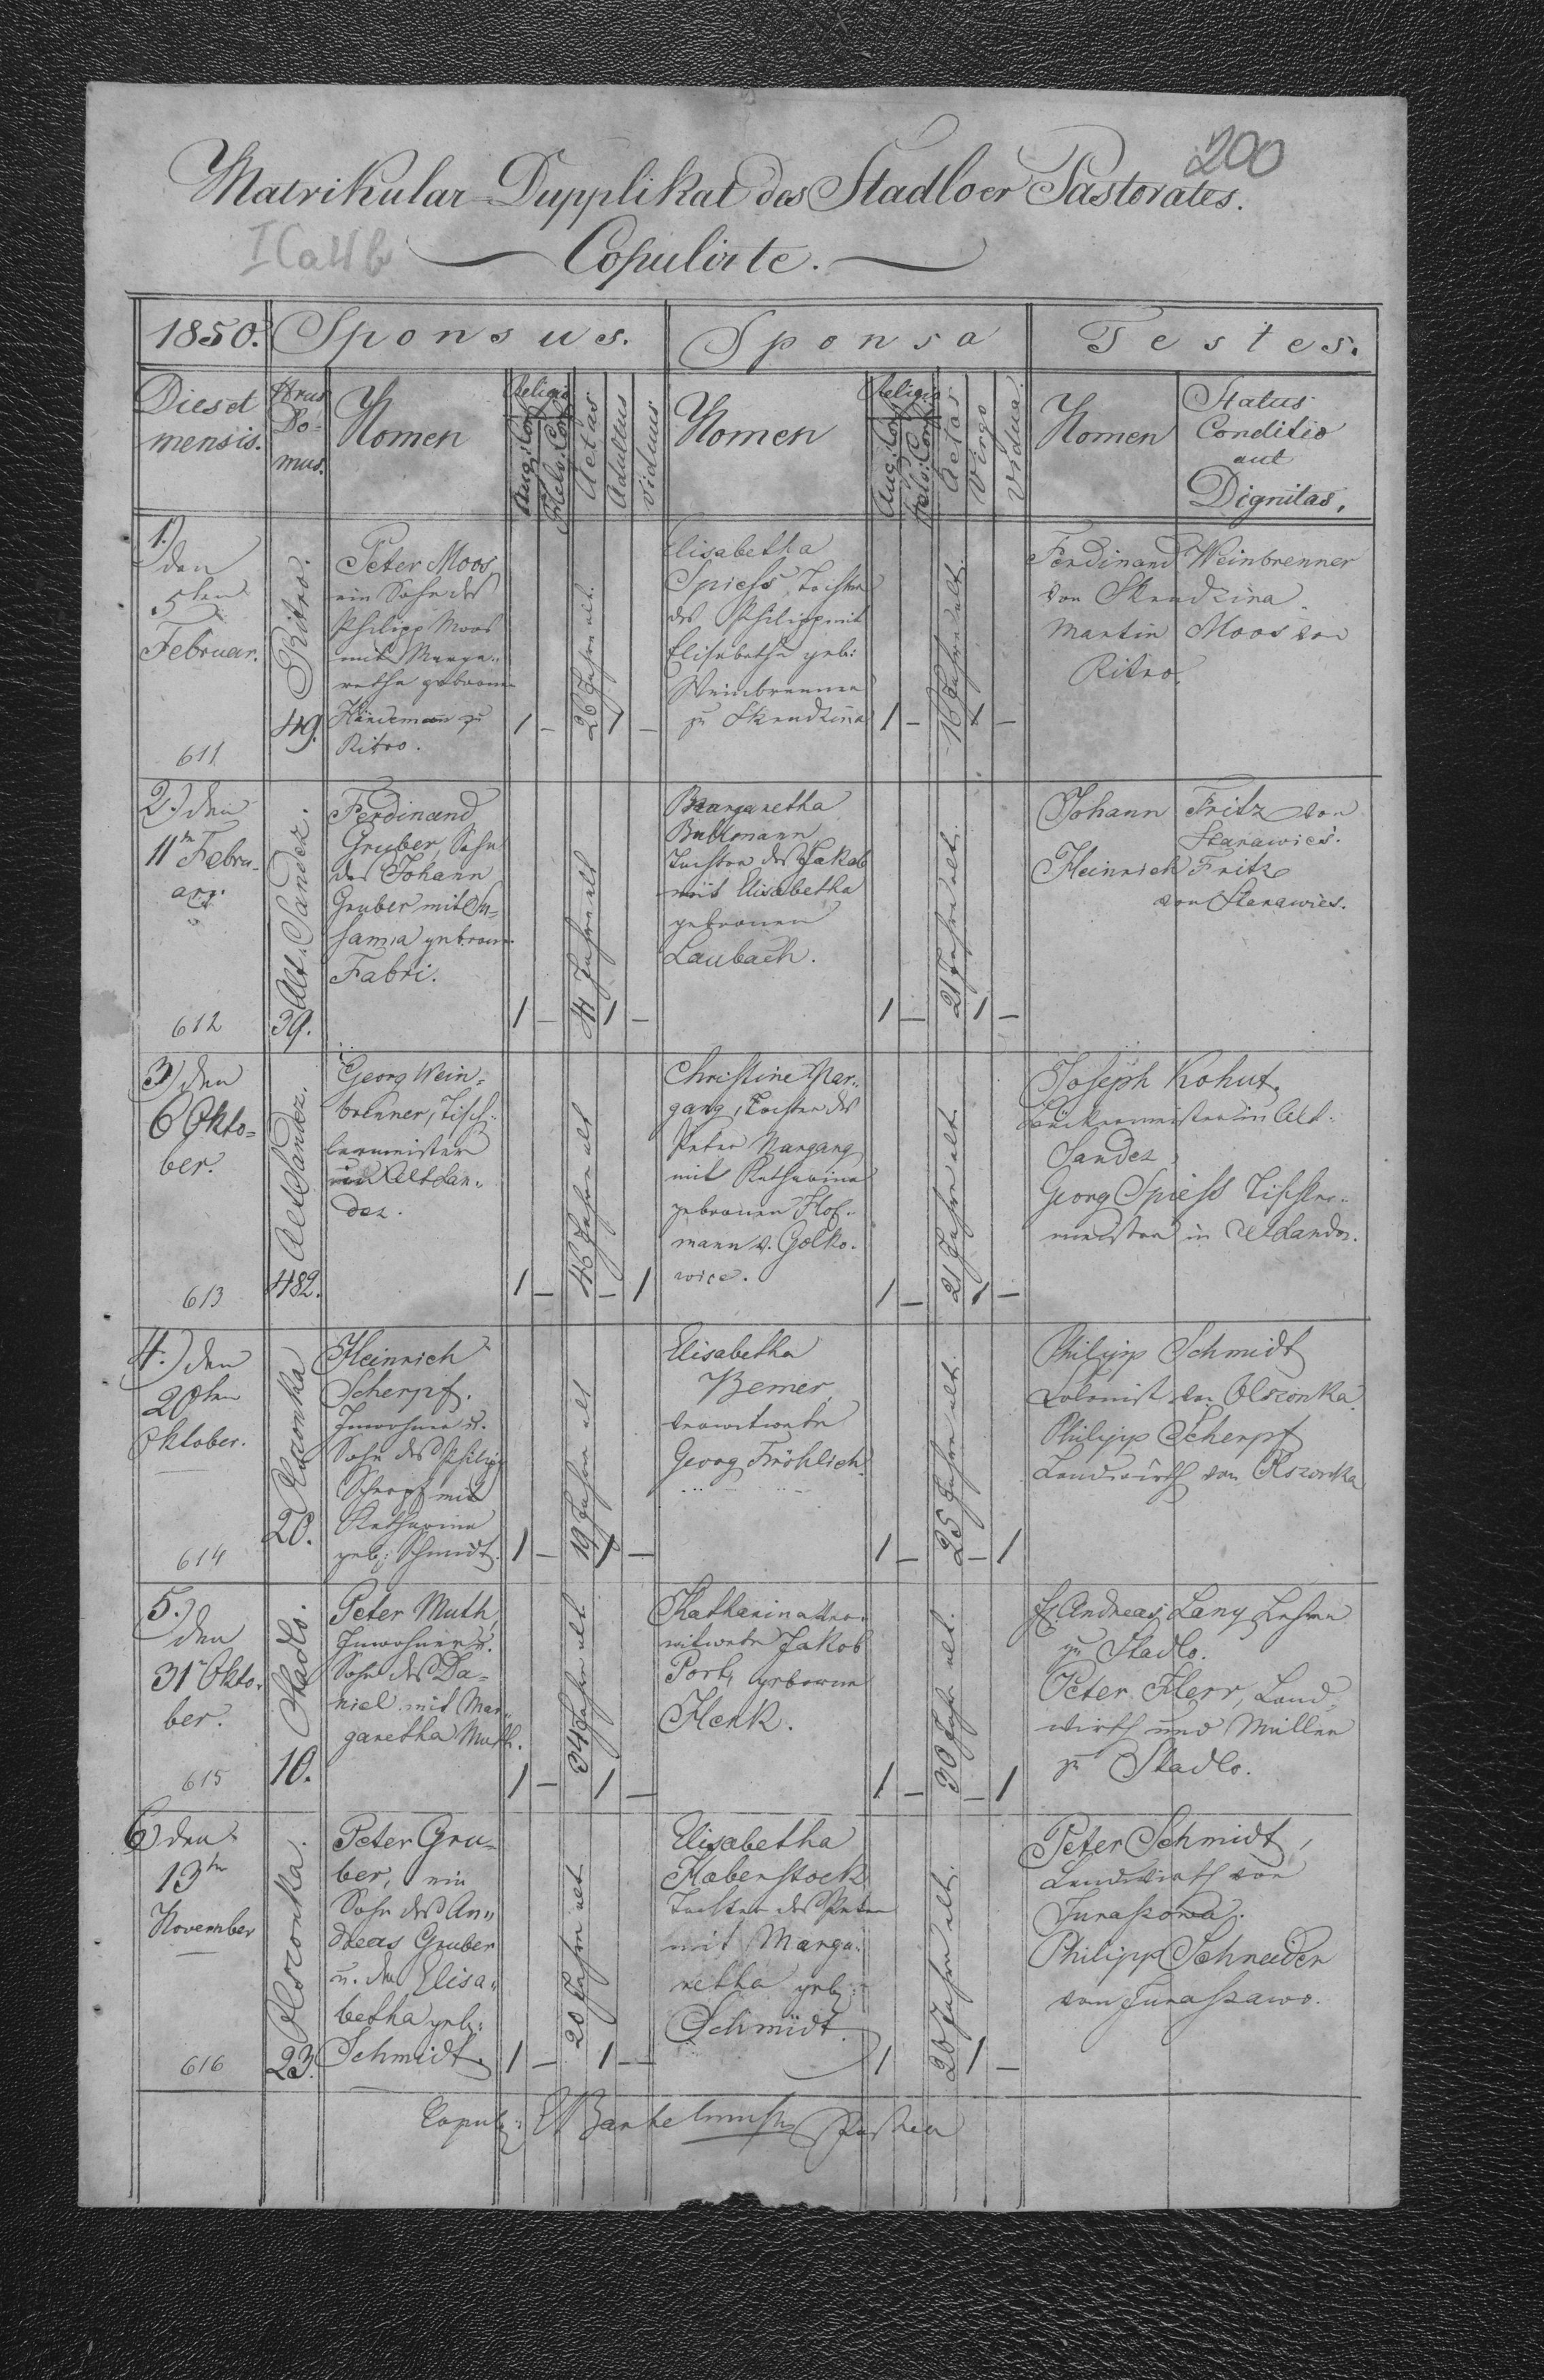 200
Matrikular-Dupplikat des Stadloer Pastorates.
I Ca 4 b
Copulirte.
1850. Sponsus. Sponsa Testes.
Dies et mensis.
Nrus Domus.
Nomen
Religio
Aug. Conf.
Helv. Conf.
Aetas
Adultus
Viduus
Nomen
Religio
Aug. Conf.
Helv. Conf.
Aetas
Virgo
Vidua
Nomen
Status
Conditio
aut
Dignitas.
1.)
den
5ten
Februar.
611
Ritro.
49.
Peter Moos
ein Sohn des
Philipp Moos
mit Marga-
retha geboren
Kindemann zu
Ritro.
1 –
26 Jahre alt.
1 –
Elisabetha
Spiess, Tochter
des Philipp mit
Elisabetha geb:
Weinbrenner
zu Skrudzina
1 –
16 Jahre alt.
1 –
Ferdinand Weinbrenner
von Skrudzina
Martin Moos von
Ritro.
2.) den
11ten Febru-
ary.
612
Alt-Sandez.
39.
Ferdinand
Gruber, Sohn
des Johann
Gruber mit Su-
sanna geboren
Fabri.
1 –
41 Jahre alt
1 –
Margaretha
Tochter des Jakob
mit Elisabetha
gebornen
Laubach.
1 –
21 Jahre alt.
1 –
Johann Fritz von
Starawies.
Heinrich Fritz
von Starawies.
3.) den
6 Okto-
ber.
613
Alt Sandez.
482.
Georg Wein-
brenner, Tisch-
lermeister
in Alt San-
dez.
1 –
46 Jahre alt
– 1
Christine Nar-
gang, Tochter des
Peter Nargang
mit Katharina
gebornen Hof-
mann v. Golko-
wice.
1 –
21 Jahre alt.
1 –
Joseph Kohut,
in Alt-
Sandez,
Georg Spiess Tischler-
meister in Alt Sandez.
4.) den
20ten
Oktober.
614
Olszonka
20.
Heinrich
Scherpf.
Inwohner u.
Sohn des Philipp
Scherpf mit
Katharina
geb: Schmidt.
1 –
19 Jahre alt
1 –
Elisabetha
Bemer,
verwitwete
Georg Fröhlich.
1 –
25 Jahre alt.
– 1
Philipp Schmidt
Kolonist von Olszonka
Philipp Scherpf
Landwirth von Olszonka
5.)
den
31ten Okto-
ber.
615
Stadlo.
10.
Peter Muth,
Inwohner u.
Sohn des Da-
niel mit Mar-
garetha Muth.
1 –
34 Jahr alt
1 –
Katharina ver-
witwete Jakob
Port, geborne
Henk.
1 –
30 Jahr alt.
– 1
H. Andreas Lany Lehrer
zu Stadlo.
Peter Herr, Land-
wirth und Müller
zu Stadlo.
6.) den
13ten
November
616
Olszonka.
23.
Peter Gru-
ber, ein
Sohn des An-
dreas Gruber
u. der Elisa-
betha geb:
Schmidt.
1 –
20 Jahre alt
1 –
Elisabetha
Haberstock
Tochter des Peter
mit Marga-
retha geb:
Schmidt.
1
20 Jahre alt.
1 –
Peter Schmidt,
Landwirth von
Juraszowa.
Philipp Schneider
von Juraszowo.
Copul: